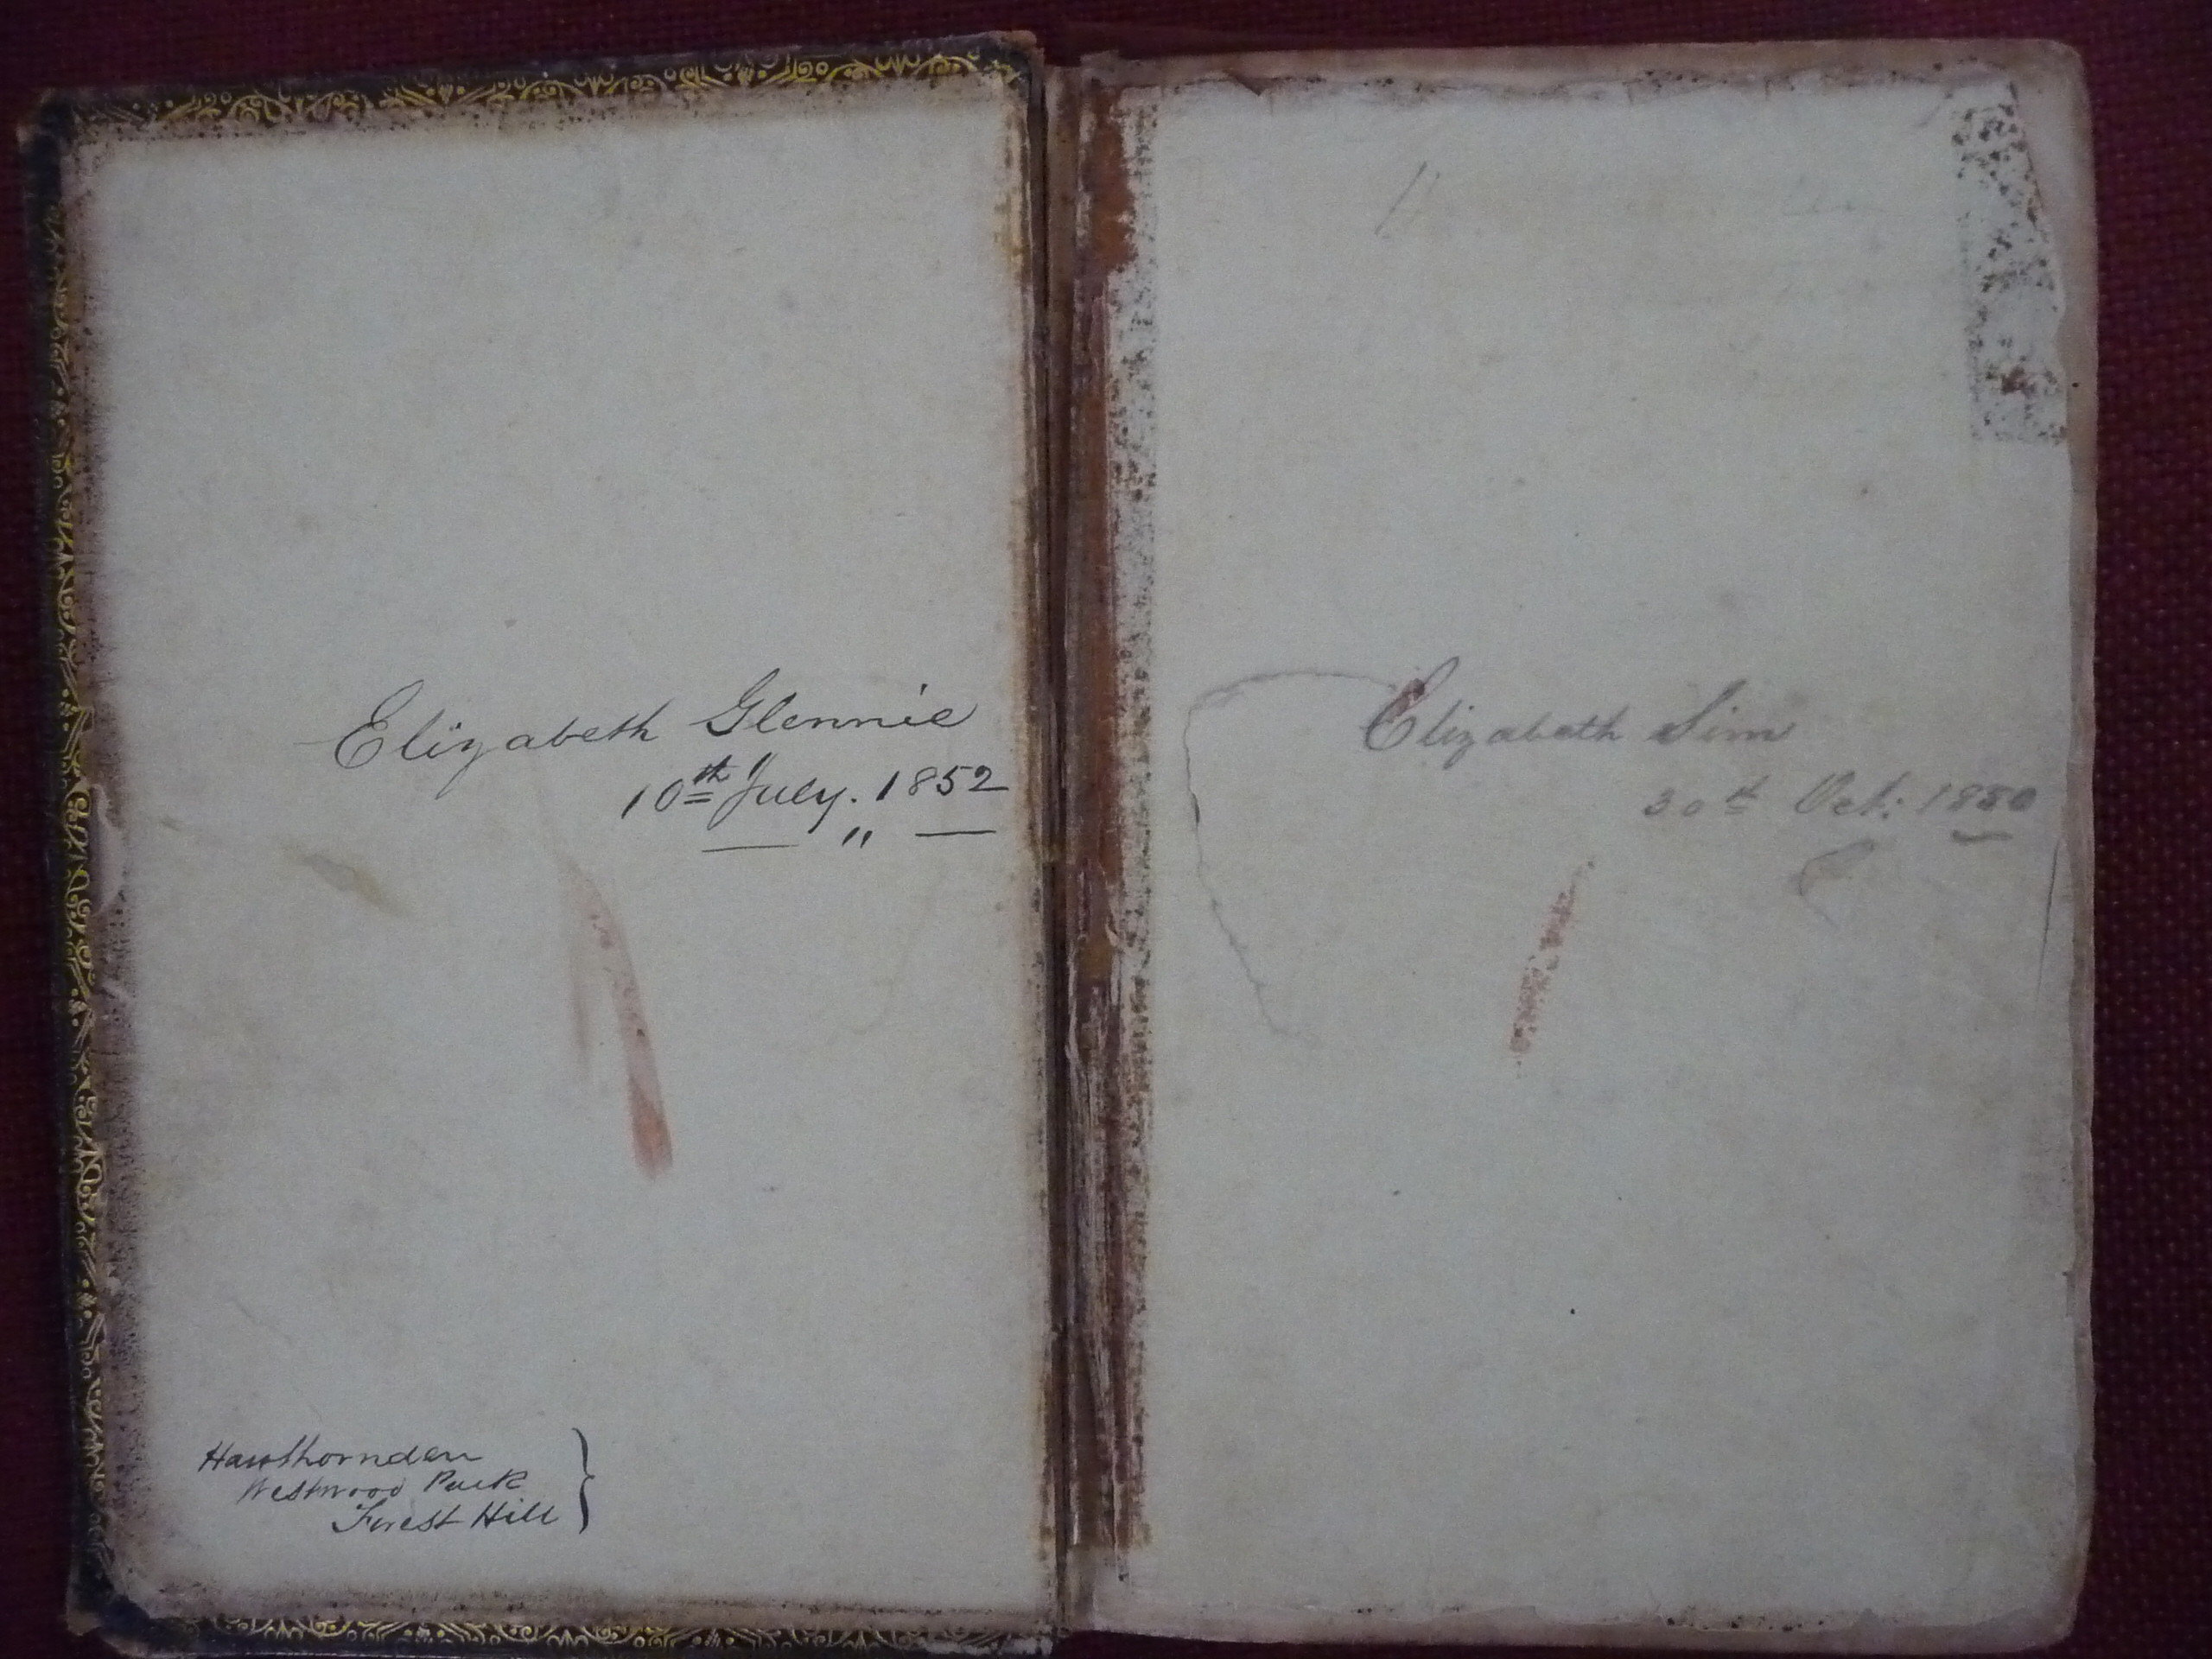 Elizabeth Glennie
10th July. 1852
Hawthornden
Westwood Park
Forest Hill
Elizabeth Sim
30th Oct: 1850